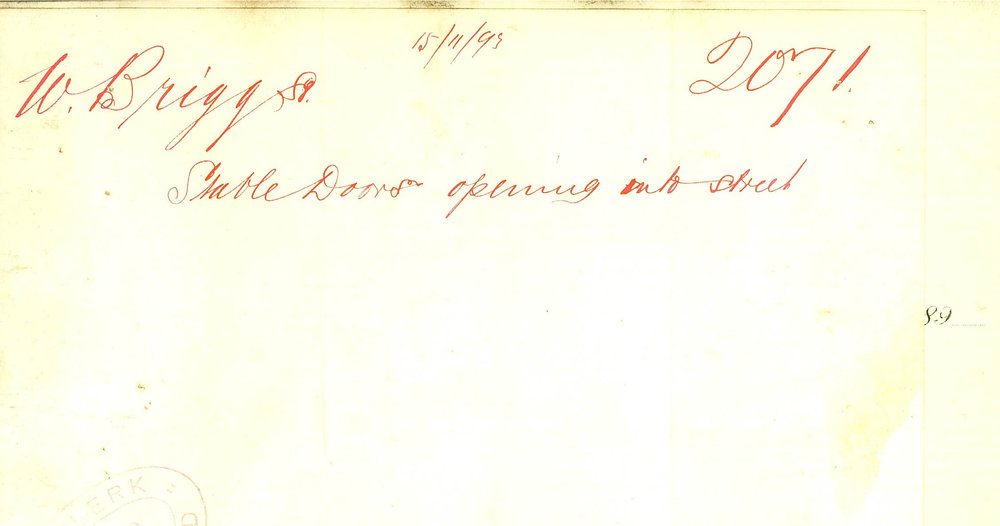 15/11/93
W. Briggs 2071.
Stable Doors opening into street
89
ERK